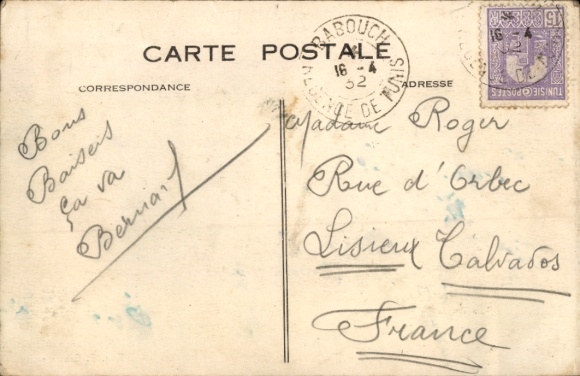 CARTE POSTALE
CORRESPONDANCE
ADRESSE
BABOUCH
16 -4
32
REGENCE DE TUNIS
15
TUNISIE POSTES
16 -4
32
Bons
Baisers
ça va
Bernard
Madame Roger
Rue d'Orbec
Lisieux Calvados
France